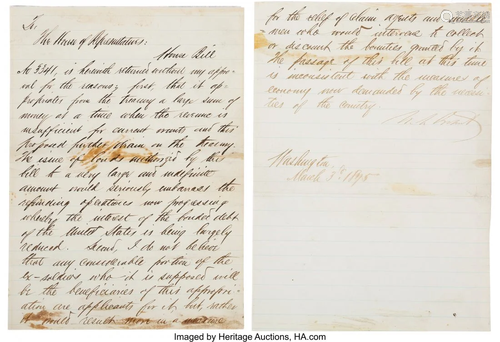 To
The House of Representatives:
House Bill
No 3341, is herewith returned without my appro-
val for the reasons; first, that it ap-
propriates from the Treasury a large sum of
money at a time when the revenue is
insufficient for current wants and this
proposed further drain on the Treasury.
The issue of bonds authorized by this
bill to a very large and indefinite
amount would seriously embarrass the
refunding operations now progressing
whereby the interest of the bonded debt
of the United States is being largely
reduced. Second, I do not believe
that any considerable portion of the
ex-soldiers who it is supposed will
be the beneficiaries of this appropri-
ation are applicants for it, but rather
it would result more in a measure
for the relief of claim agents and middle
men who would intervene to collect
or discount the bounties granted by it.
The passage of this bill at this time
is inconsistent with the measures of
economy now demanded by the necessi-
ties of the country
U. S. Grant
Washington
March 3d 1875
Imaged by Heritage Auctions, HA.com